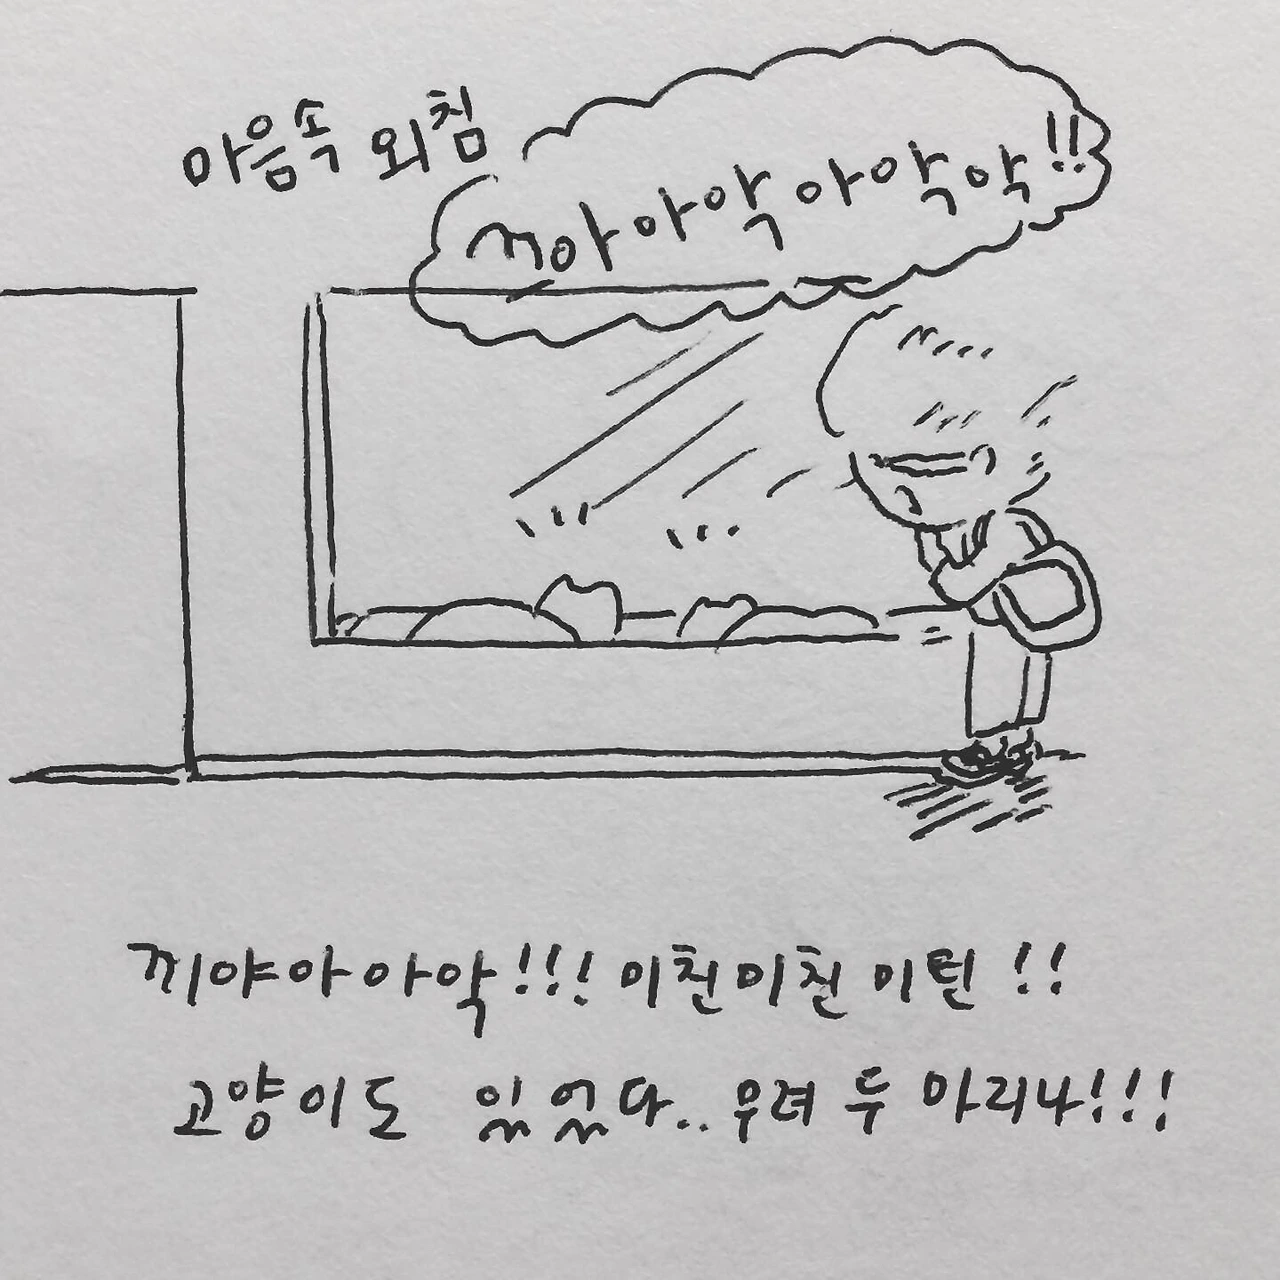 마음속 외침
끼아아악아악악!!
끼야아아악!!! 미친미친 미턴!!
고양이도 있었다.. 무려 두 마리나!!!